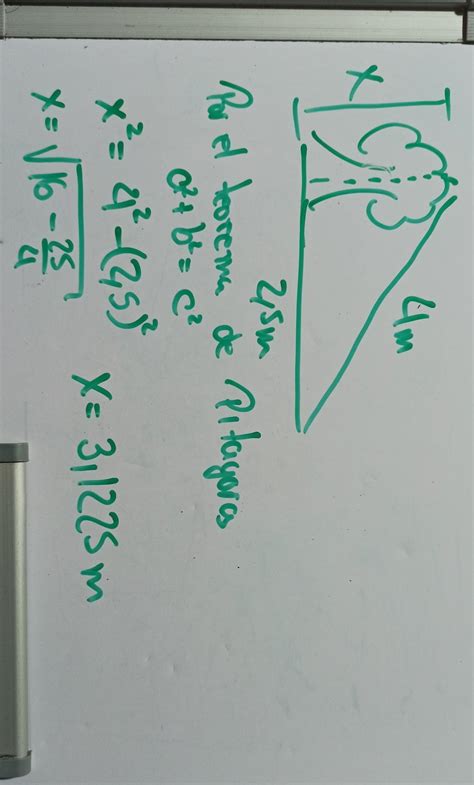 x
4m
2,5m
Por el teorema de Pitagoras
a²+b²=c²
x²= 4²-(2,5)²
x=√16-25/4
x= 3,1225m